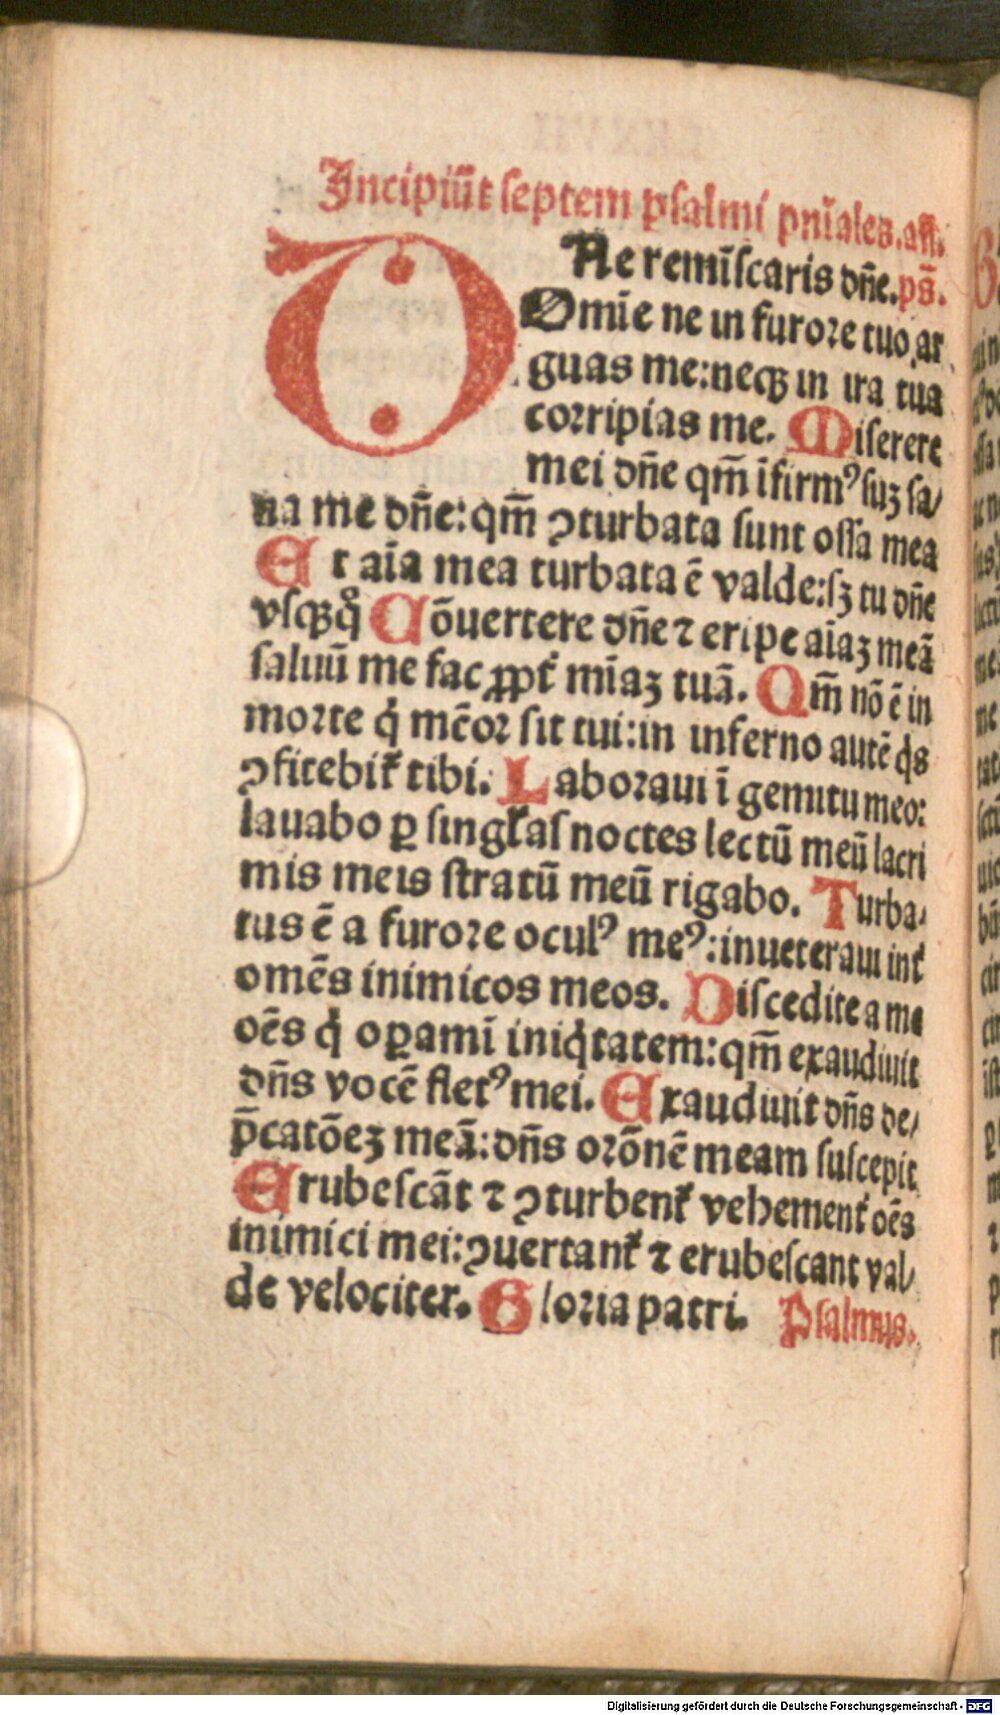 Incipiūt septem psalmi pnīales. añ.
Ne remīscaris dñe. ps̄.
Domīe ne in furore tuo ar
guas me: neqꝫ in ira tua
corripias me. Miserere
mei dñe qm̄ īfirmꝰ suꝫ sa/
na me dñe: qm̄ ꝯturbata sunt ossa mea
Et aīa mea turbata ē valde: sꝫ tu dñe
vsqꝫqͦ Cōuertere dñe ⁊ eripe aīaꝫ meā
saluū me fac ꝓpt̄ mīaꝫ tuā. Qm̄ nō ē in
morte qͥ mēor sit tui: in inferno autē qͥs
ꝯfitebit̄ tibi. Laboraui ī gemitu meo:
lauabo ꝑ singl̄as noctes lectū meū lacri
mis meis stratū meū rigabo. Turba/
tus ē a furore oculꝰ meꝰ: inueteraui int̄
omēs inimicos meos. Discedite a me
oēs qͥ oꝑamī iniqͥtatem: qm̄ exaudiuit
dñs vocē fletꝰ mei. Exaudiuit dñs de/
p̄catōeꝫ meā: dñs orōnē meam suscepit
Erubescāt ⁊ ꝯturbent̄ vehement̄ oēs
inimici mei: ꝯuertant̄ ⁊ erubescant val/
de velociter. Gloria patri. Psalmus.
Digitalisierung gefördert durch die Deutsche Forschungsgemeinschaft - DFG